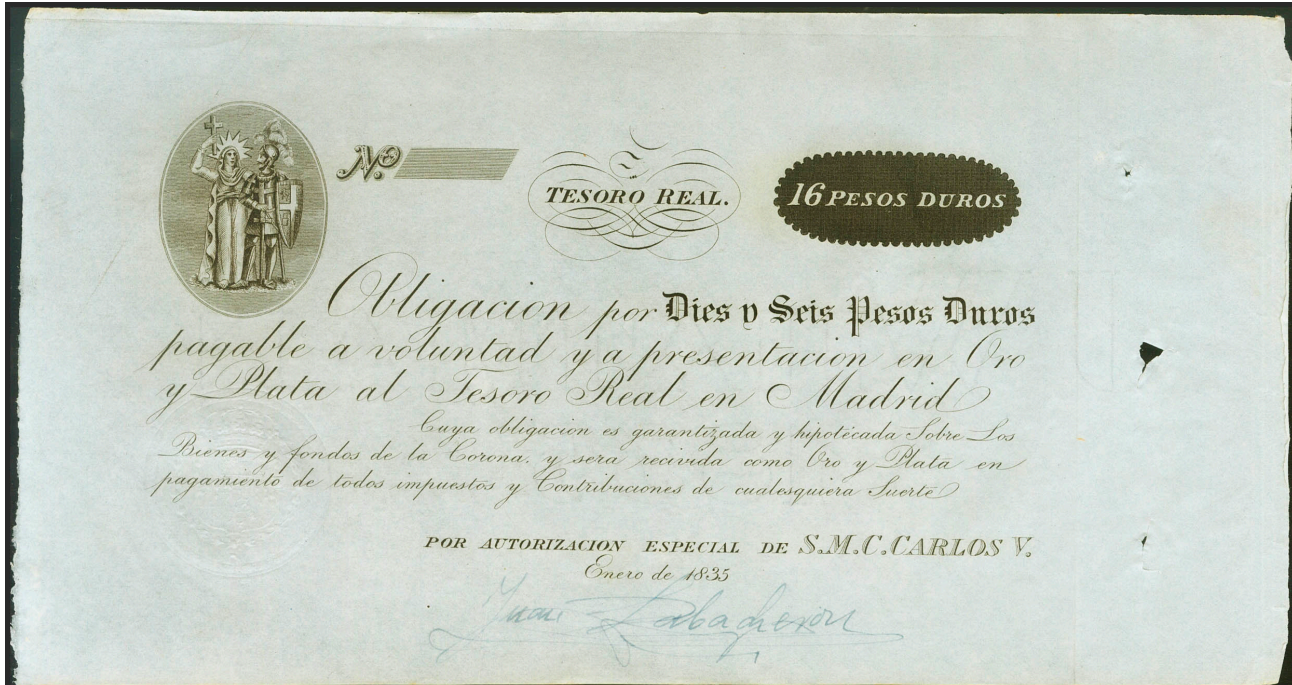 No.
TESORO REAL.
16 PESOS DUROS
Obligacion por Dies y Seis Pesos Duros
pagable a voluntad y a presentacion en Oro
y Plata al Tesoro Real en Madrid
Cuya obligacion es garantizada y hipotécada Sobre Los
Bienes y fondos de la Corona, y sera recivida como Oro y Plata en
pagamiento de todos impuestos y Contribuciones de cualesquiera Suerte
POR AUTORIZACION ESPECIAL DE S.M.C. CARLOS V.
Enero de 1835
Juan